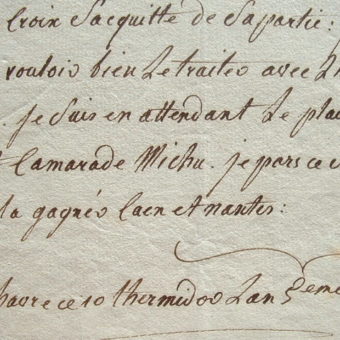 croix Sacquitté de Sapartie:
vouloir bien Letraiter avec
. je Suis en attendant Le
Camarade Michu. je pars ce
la gagner Caen et nantes:
havre ce 10 thermidor Lan 5eme